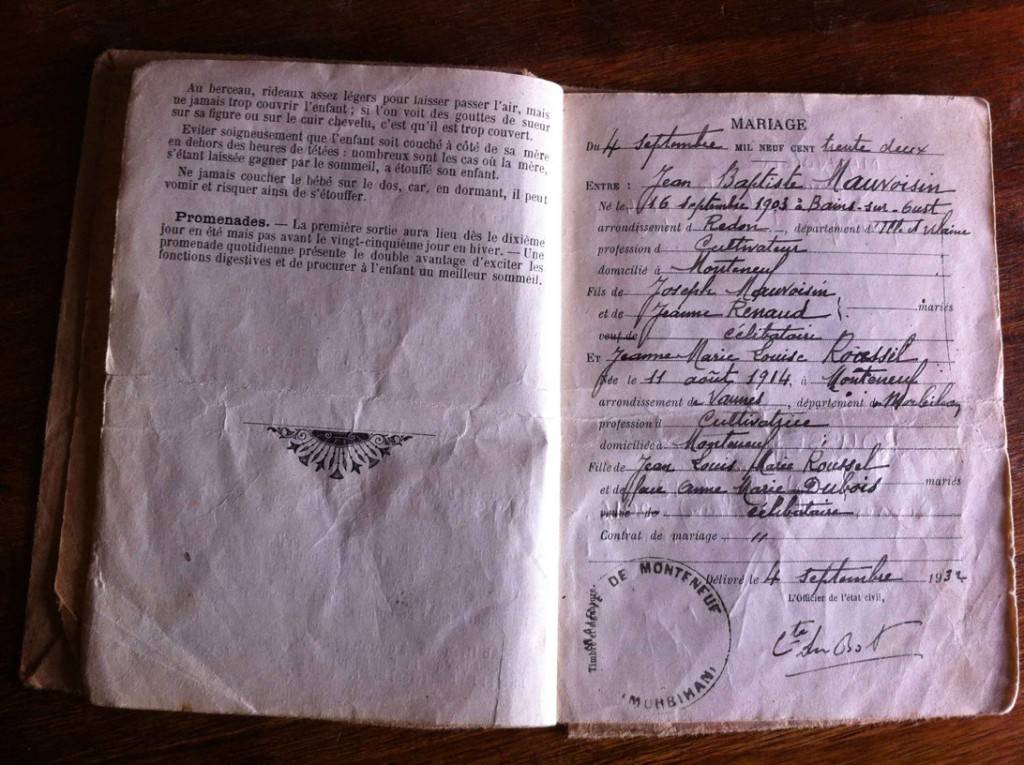 Au berceau, rideaux assez légers pour laisser passer l'air, mais
ne jamais trop couvrir l'enfant ; si l'on voit des gouttes de sueur
sur sa figure ou sur le cuir chevelu, c'est qu'il est trop couvert.
Eviter soigneusement que l'enfant soit couché à côté de sa mère
en dehors des heures de tétées : nombreux sont les cas où la mère,
s'étant laissée gagner par le sommeil, a étouffé son enfant.
Ne jamais coucher le bébé sur le dos, car, en dormant, il peut
vomir et risquer ainsi de s'étouffer.
Promenades. — La première sortie aura lieu dès le dixième
jour en été mais pas avant le vingt-cinquième jour en hiver. — Une
promenade quotidienne présente le double avantage d'exciter les
fonctions digestives et de procurer à l'enfant un meilleur sommeil.
MARIAGE
Du 4 septembre MIL NEUF CENT trente deux
ENTRE : Jean Baptiste Mauvoisin
Né le 16 septembre 1903 à Bains-sur-Oust
arrondissement d Redon, département d'Ille et Vilaine
profession d Cultivateur
domicilié à Monteneuf
Fils de Joseph Mauvoisin
et de Jeanne Renaud mariés
veuf de célibataire
ET Jeanne Marie Louise Roussel
Née le 11 août 1914, à Monteneuf
arrondissement de Vannes, département du Morbihan
profession d Cultivatrice
domiciliée à Monteneuf
Fille de Jean Louis Marie Roussel
et de Anne Marie Dubois mariés
veuve de célibataire
Contrat de mariage 11
Délivré le 4 septembre 1932
L'Officier de l'état civil,
Cte du Bot
MAIRIE DE MONTENEUF
(MORBIHAN)